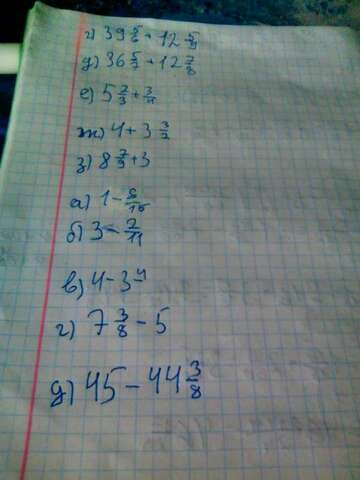 г) 39 5/6 + 12 5/9
д) 36 5/7 + 12 7/8
е) 5 2/3 + 3/11
ж) 4 + 3 3/7
з) 8 7/9 + 3
а) 1 - 8/15
б) 3 - 2/11
в) 4 - 3
г) 7 3/8 - 5
д) 45 - 44 3/8